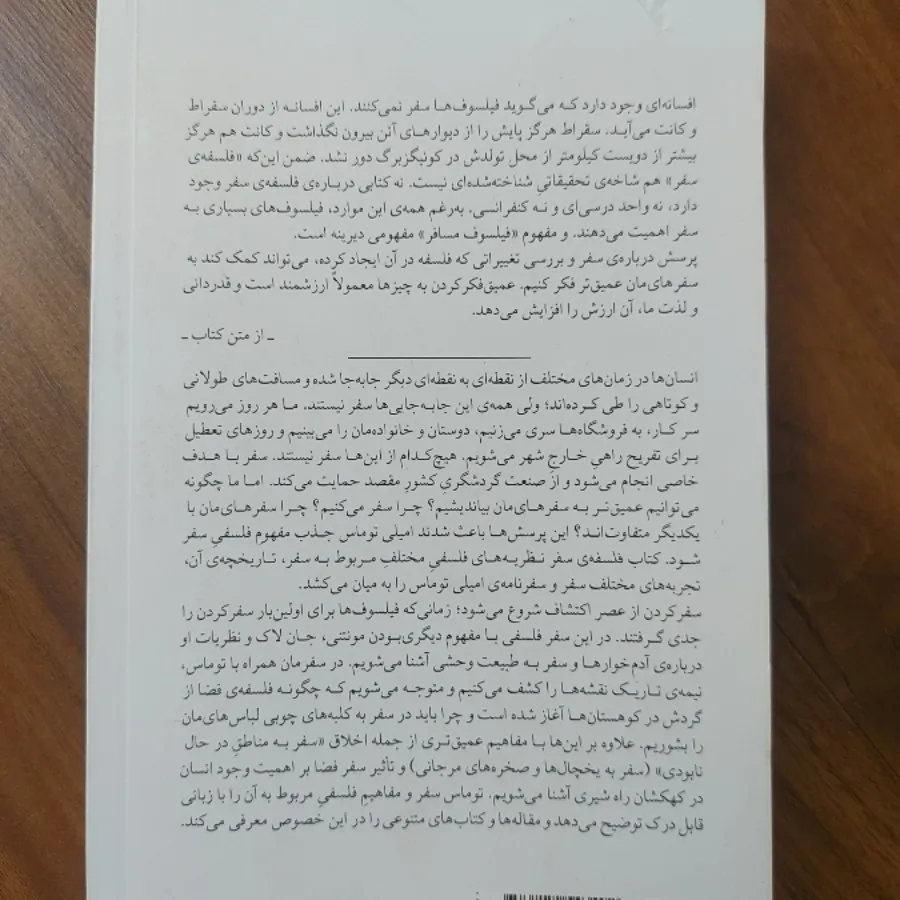 افسانه‌ای وجود دارد که می‌گوید فیلسوف‌ها سفر نمی‌کنند. این افسانه از دوران سقراط
و کانت می‌آید. سقراط هرگز پایش را از دیوارهای آتن بیرون نگذاشت و کانت هم هرگز
بیشتر از دویست کیلومتر از محل تولدش در کونیگزبرگ دور نشد. ضمن این‌که «فلسفه‌ی
سفر» هم شاخه‌ی تحقیقاتیِ شناخته‌شده‌ای نیست. نه کتابی درباره‌ی فلسفه‌ی سفر وجود
دارد، نه واحد درسی‌ای و نه کنفرانسی. به‌رغم همه‌ی این موارد، فیلسوف‌های بسیاری به
سفر اهمیت می‌دهند. و مفهوم «فیلسوف مسافر» مفهومی دیرینه است.
پرسش درباره‌ی سفر و بررسی تغییراتی که فلسفه در آن ایجاد کرده، می‌تواند کمک کند به
سفرهای‌مان عمیق‌تر فکر کنیم. عمیق‌فکرکردن به چیزها معمولاً ارزشمند است و قدردانی
و لذت ما، آن ارزش را افزایش می‌دهد.
ـ از متن کتاب ـ
انسان‌ها در زمان‌های مختلف از نقطه‌ای به نقطه‌ای دیگر جابه‌جا شده و مسافت‌های طولانی
و کوتاهی را طی کرده‌اند؛ ولی همه‌ی این جابه‌جایی‌ها سفر نیستند. ما هر روز می‌رویم
سر کار، به فروشگاه‌ها سری می‌زنیم، دوستان و خانواده‌مان را می‌بینیم و روزهای تعطیل
برای تفریح راهیِ خارج شهر می‌شویم. هیچ‌کدام از این‌ها سفر نیستند. سفر با هدف
خاصی انجام می‌شود و از صنعت گردشگریِ کشورِ مقصد حمایت می‌کند. اما ما چگونه
می‌توانیم عمیق‌تر به سفرهای‌مان بیاندیشیم؟ چرا سفر می‌کنیم؟ چرا سفرهای‌مان با
یکدیگر متفاوت‌اند؟ این پرسش‌ها باعث شدند امیلی توماس جذب مفهوم فلسفیِ سفر
شود. کتاب فلسفه‌ی سفر نظریه‌های فلسفیِ مختلفِ مربوط به سفر، تاریخچه‌ی آن،
تجربه‌های مختلف سفر و سفرنامه‌ی امیلی توماس را به میان می‌کشد.
سفرکردن از عصر اکتشاف شروع می‌شود؛ زمانی‌که فیلسوف‌ها برای اولین‌بار سفرکردن را
جدی گرفتند. در این سفر فلسفی با مفهوم دیگری‌بودن مونتنی، جان لاک و نظریات او
درباره‌ی آدم‌خوارها و سفر به طبیعت وحشی آشنا می‌شویم. در سفرمان همراه با توماس،
نیمه‌ی تاریک نقشه‌ها را کشف می‌کنیم و متوجه می‌شویم که چگونه فلسفه‌ی فضا از
گردش در کوهستان‌ها آغاز شده است و چرا باید در سفر به کلبه‌های چوبی لباس‌های‌مان
را بشوریم. علاوه بر این‌ها با مفاهیم عمیق‌تری از جمله اخلاق «سفر به مناطقِ در حال
نابودی» (سفر به یخچال‌ها و صخره‌های مرجانی) و تأثیر سفر فضا بر اهمیت وجود انسان
در کهکشان راه شیری آشنا می‌شویم. توماس سفر و مفاهیمِ فلسفیِ مربوط به آن را با زبانی
قابل درک توضیح می‌دهد و مقاله‌ها و کتاب‌های متنوعی را در این خصوص معرفی می‌کند.